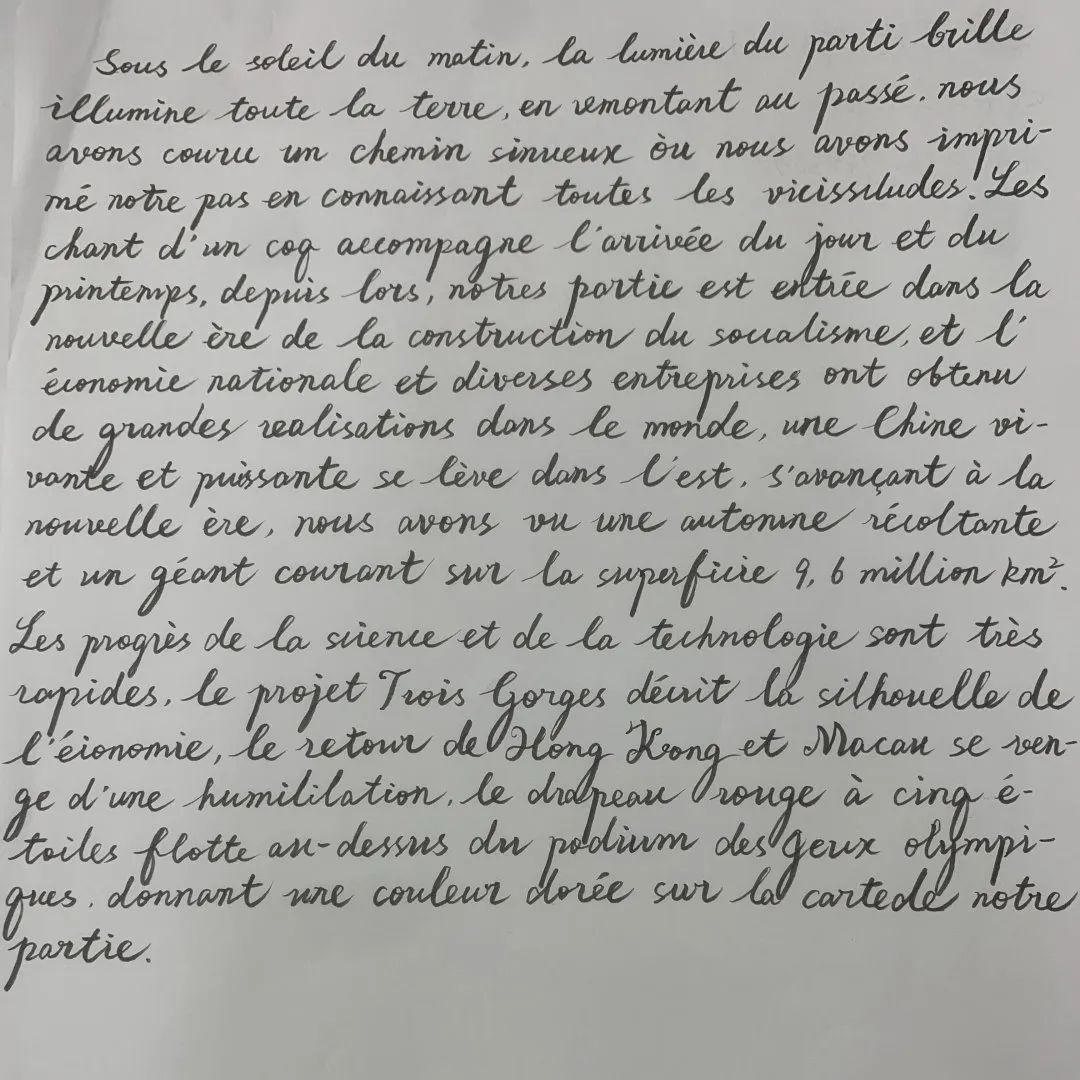 Sous le soleil du matin, la lumière du parti brille
illumine toute la terre, en remontant au passé. nous
avons couru un chemin sinueux òu nous avons impri-
mé notre pas en connaissant toutes les vicissiludes. Les
chant d'un coq accompagne l'arrivée du jour et du
printemps, depuis lors, notres partie est entrée dans la
nouvelle ère de la construction du socialisme, et l'
économie nationale et diverses entreprises ont obtenu
de grandes realisations dans le monde, une Chine vi-
vante et puissante se lève dans l'est, s'avançant à la
nouvelle ère, nous avons vu une automne récoltante
et un géant courant sur la superficie 9,6 million km².
Les progrès de la science et de la technologie sont très
rapides, le projet Trois Gorges décrit la silhouelle de
l'économie, le retour de Hong Kong et Macau se ven-
ge d'une humililation, le drapeau rouge à cinq é-
toiles flotte au-dessus du podium des geux olympi-
ques, donnant une couleur dorée sur la cartede notre
partie.